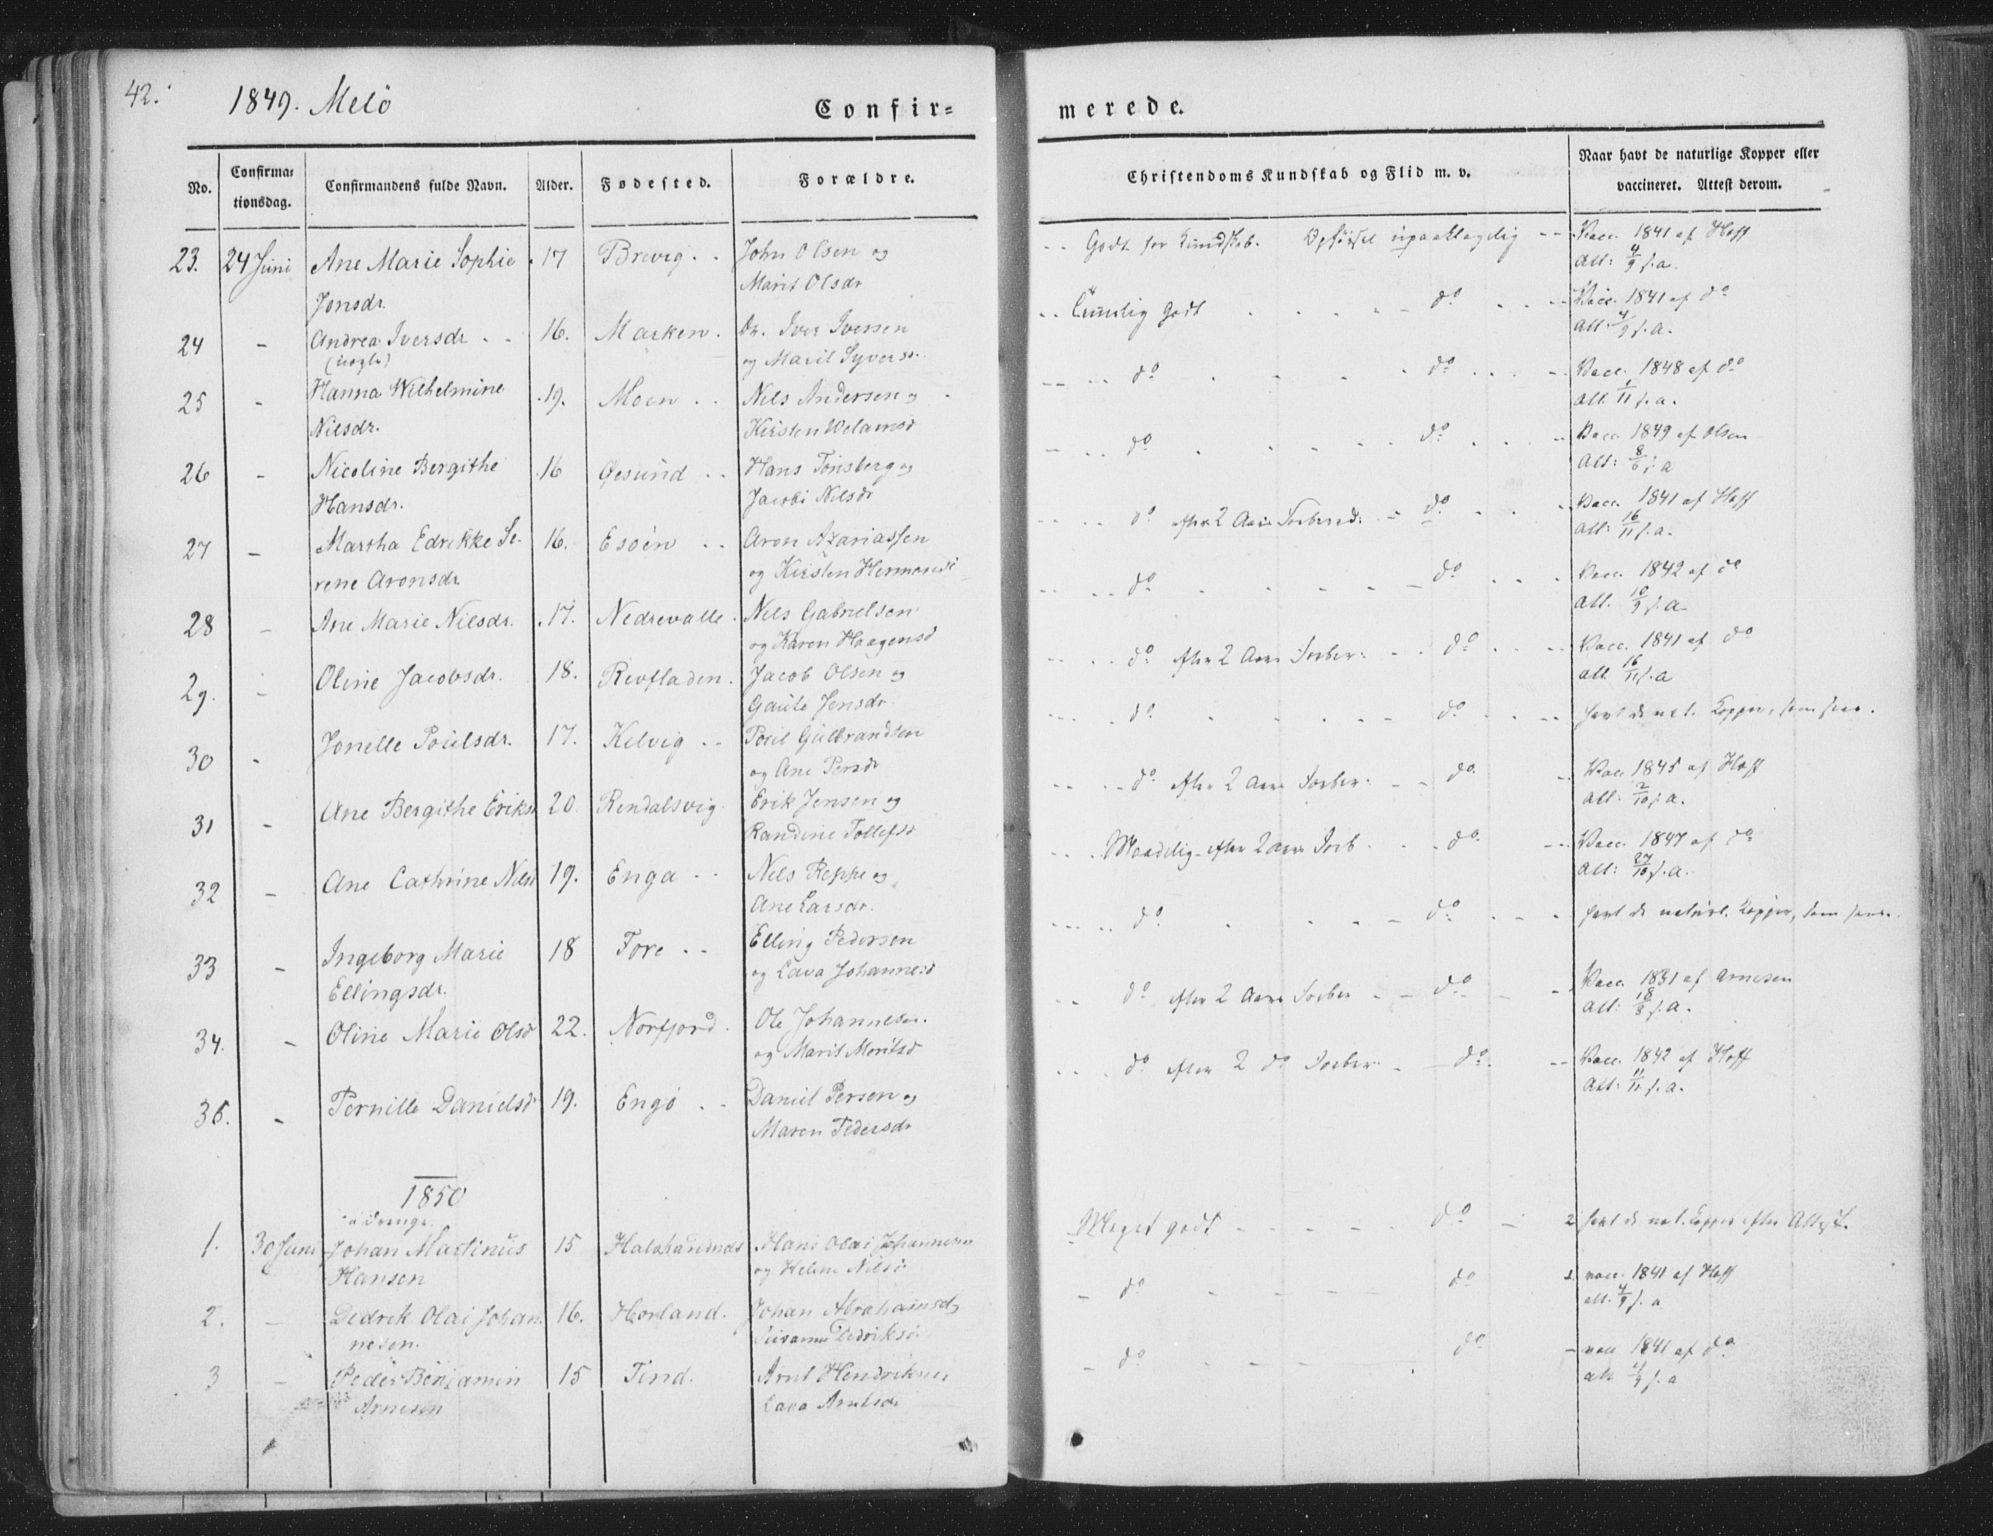 42.
1849. Melö
Confir=
merede.
No.
Confirma=
tionsdag.
Confirmandens fulde Navn.
Alder.
Fødested.
Forældre.
Christendoms Kundskab og Flid m. v.
Naar havt de naturlige Kopper eller
vaccineret. Attest derom.
23. 24 Juni Ane Marie Sophie 17 Brevig John Olsen og Godt for Kundskab. Opførsel upaaklagelig Vacc. 1841 af Hoff
Jonsdr. Marit Olsdr Att: 4/9 s. a.
24 - Andrea Iversdr 16. Marken. Iver Iversen Temlig Godt do Vacc. 1841 af do
(uegte) og Marit Syversd. Att: 4/9 s. a.
25 - Hanna Wilhelmine 19. Moen Nils Andersen og do do Vacc. 1848 af do
Nilsdr. Kirsten Welamsd Att. 1/11 s. a.
26 - Nicoline Bergithe 16 Øesund Hans Tønsberg og do do Vacc. 1849 af Olsen
Hansdr. Jacobi Nilsdr Att: 8/6 s. a
27 - Martha Edrikke Se- 16. Esöen Aron Azariassen do efter 2 Aars Forbered: do Vacc. 1841 af Hoff
rene Aronsdr og Kirsten Hermansd Att: 16/11 s. a.
28 - Ane Marie Nilsdr. 17. Nedrevalle. Nils Gabrielsen do do Vacc. 1842 af do
og Karen Haagensd Att. 10/9 s. a.
29. - Oline Jacobsdr. 18. Revfladen. Jacob Olsen og do efter 2 Aars Forber: do Vacc. 1841 af do
Gaute Jensdr. att 16/11 s. a
30 - Jonelle Poulsdr. 17. Kilvig Poul Gulbrandsen do do havt de nat. Kopper, som sees.
og Ane Persdr
31 - Ane Bergithe Eriksd 20. Rendalsvig. Erik Jensen og do efter 2 Aars Forber: do Vacc 1845 af Hoff
Randine Tollefsd Att: 2/10 s. a.
32 - Ane Cathrine Nilsd 19. Enga Nils Reppe og Maadelig efter 2 Aars Forb do Vacc. 1847 af do
Ane Larsdr. Att: 27/10 s. a.
33 - Ingeborg Marie 18 Fore Elling Pedersen do do havt de naturl. Kopper, som sees.
Ellingsdr. og Lava Johannesd
34. - Oline Marie Olsd 22. Norfjord. Ole Johannesen do efter 2 Aars Forber do Vacc. 1831 af Arnesen
og Marit Moritsd Att: 18/8 s. a.
35. - Pernille Danielsd 19. Engö Daniel Persen og do efter 2 do Forber do. Vacc. 1842 af Hoff
Maren Pedersdr Att: 11/11 s. a.
1850
Drenge.
1. 30 Juni Johan Martinus 15 Halshaundnæs Hans Olai Johannesen Meget godt do havt de nat. Kopper efter Attest.
Hansen og Helene Nilsd
2. - Didrik Olai Johan 16. Horland. Johan Abrahamsd do do vacc. 1841 af Hoff
nesen. Susanna Didriksd att. 4/9 s. a
3 - Peder Benjamin 15 Tind. Arnt Hendriksen do do vacc 1841 af do
Arntsen Lava Arntsdr att 4/9 s. a